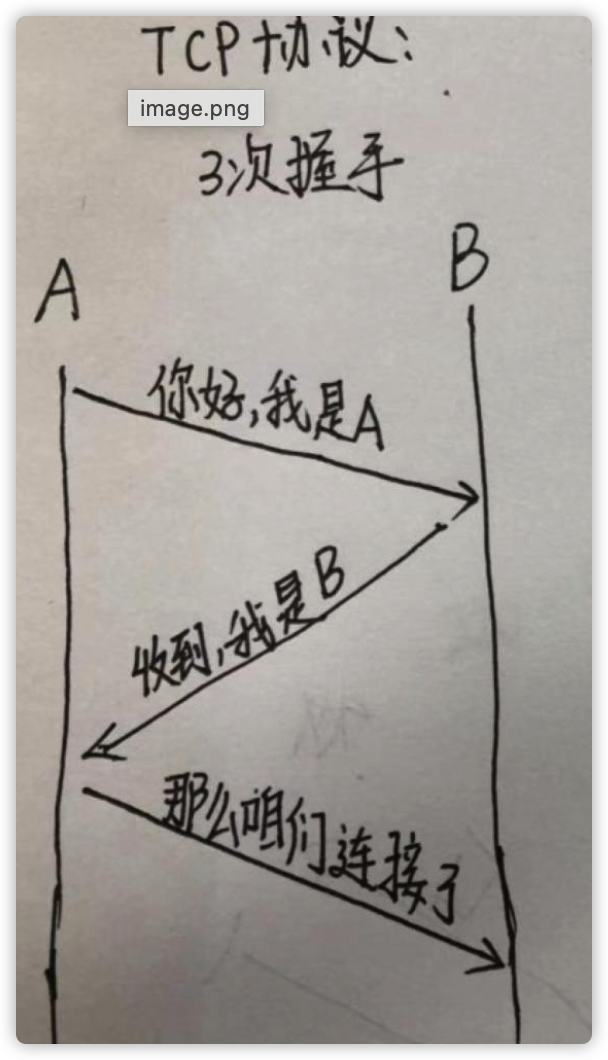 TCP协议:
image.png
3次握手
A
B
你好,我是A
收到,我是B
那么咱们连接了